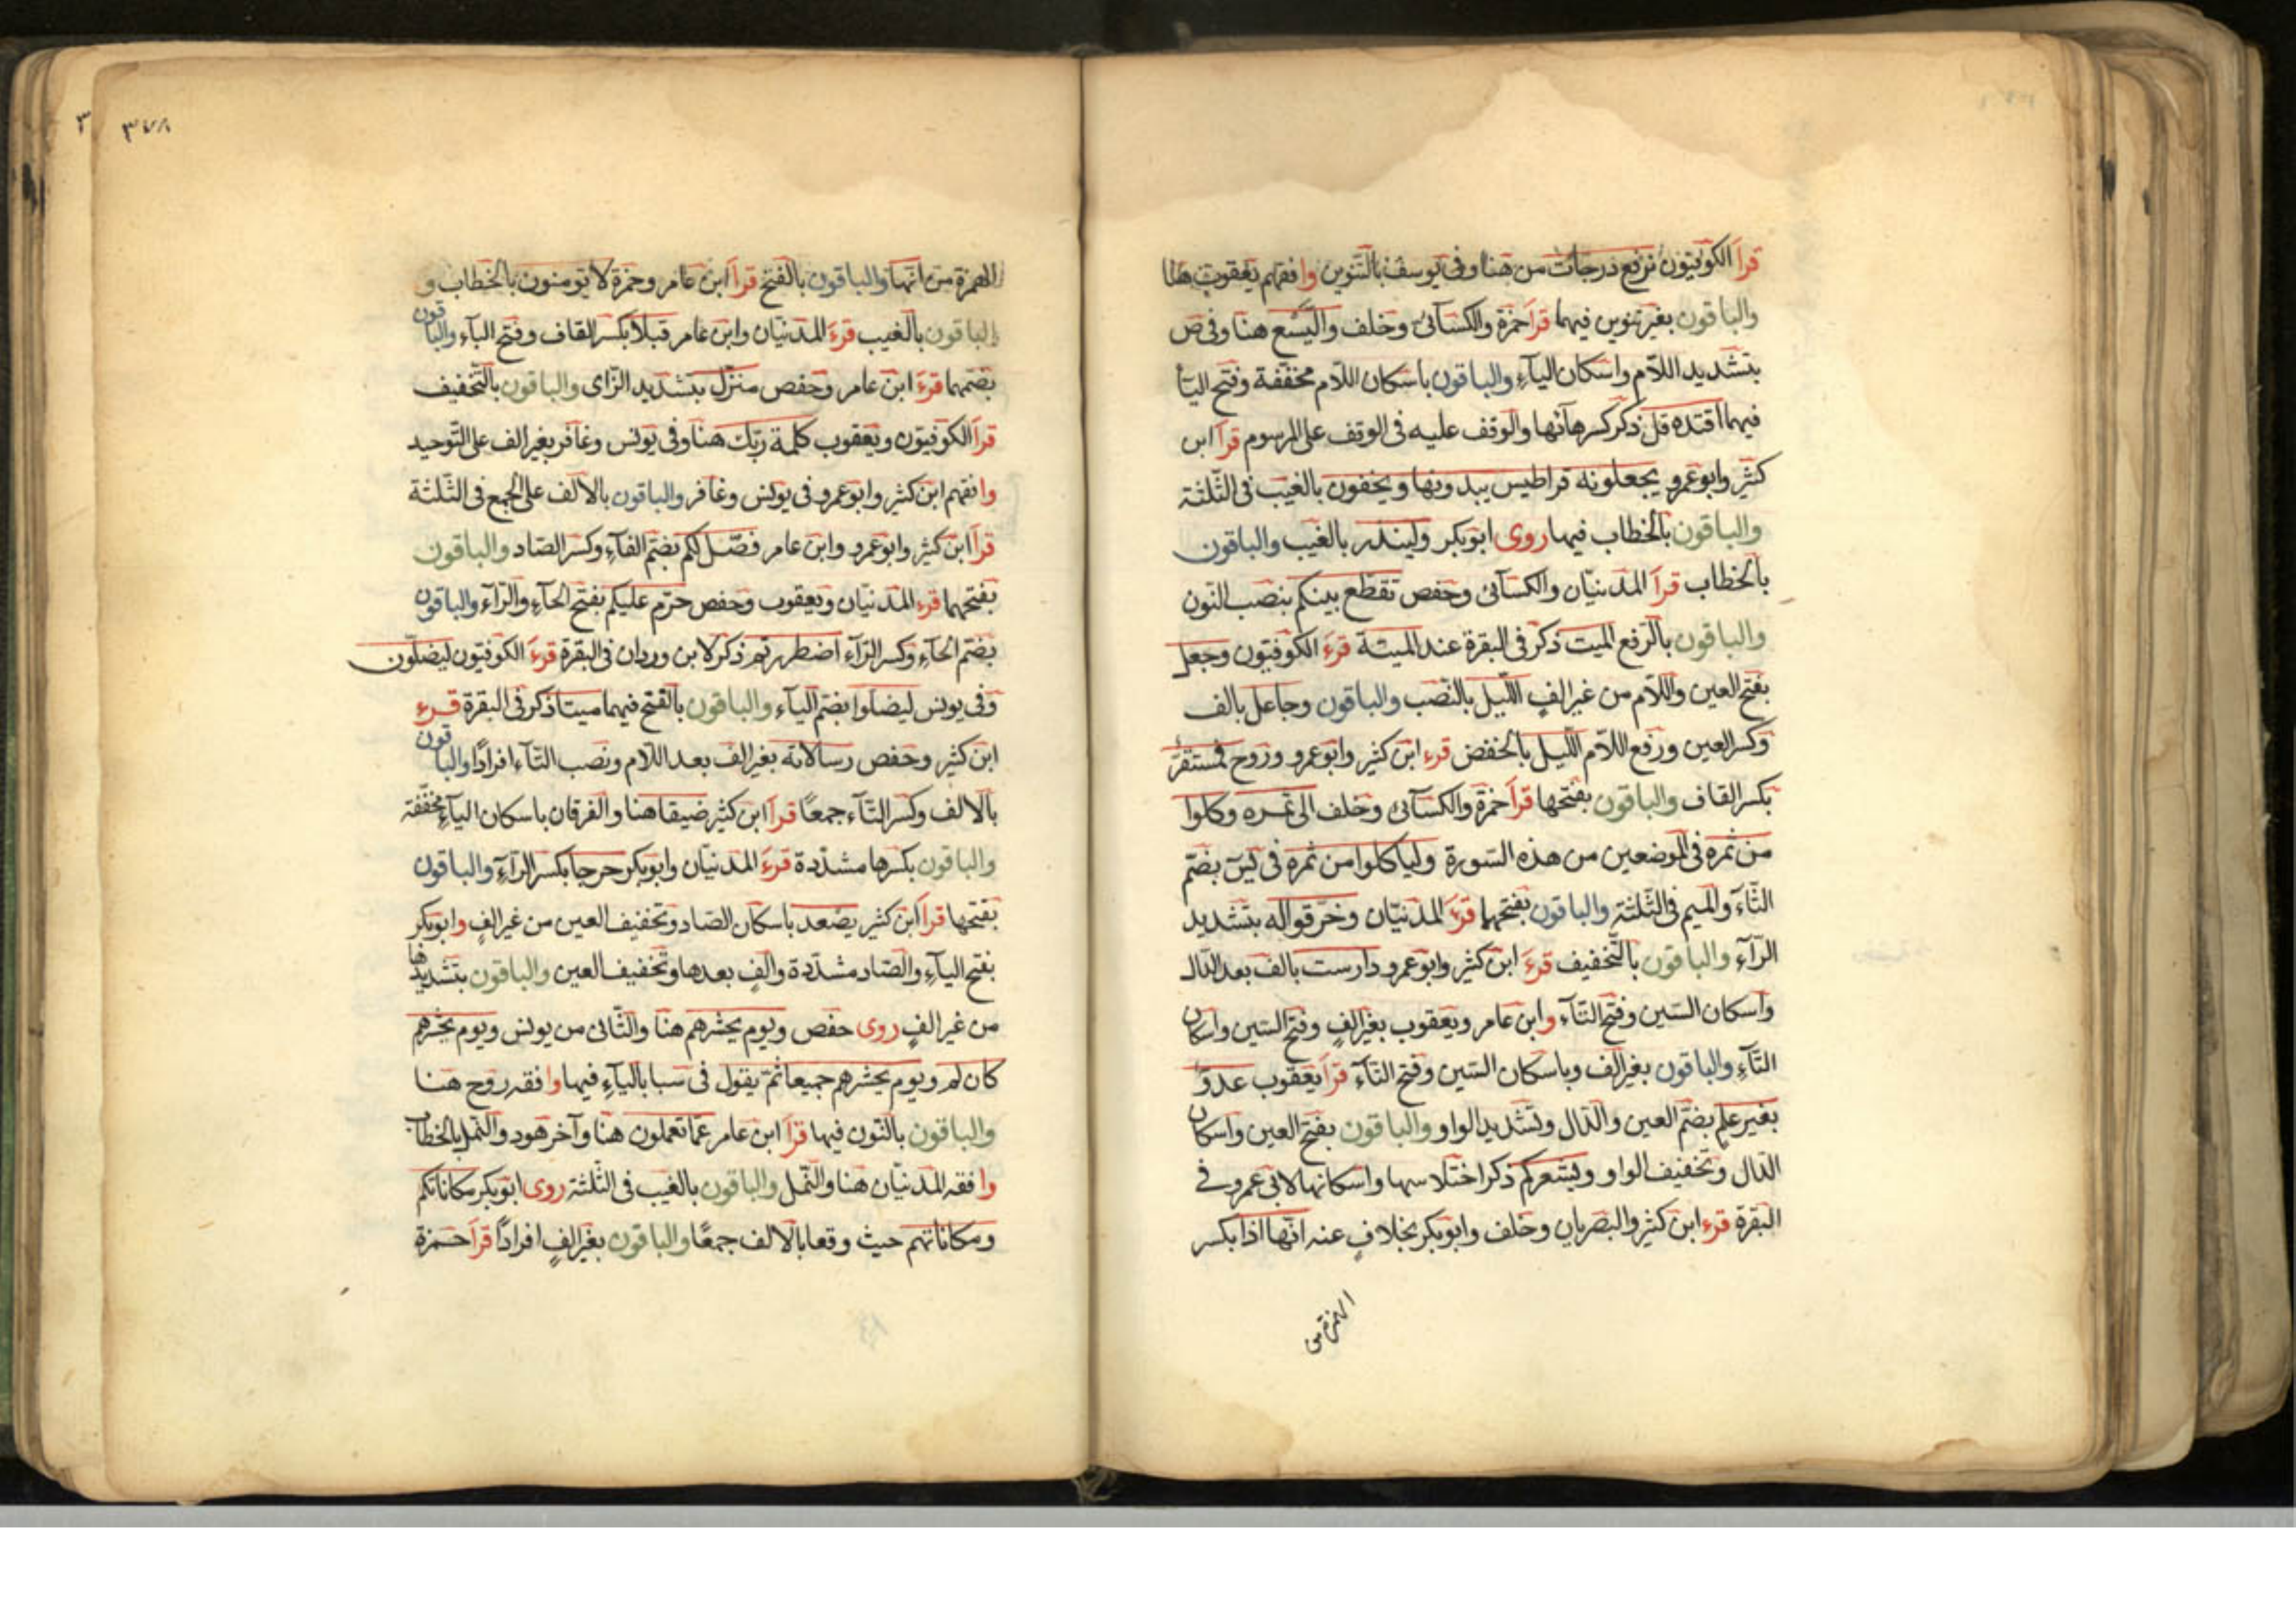 قرأ الكوفيّون نرفع درجات من هنا وفى يوسف بالتّنوين وافقهم يعقوب هنا
والباقون بغير تنوين فيهما قرأ حمزة والكسآئىّ وخلف والّيسع هنا وفى ص
بتشديد اللاّم واسكان اليآء والباقون باسكان اللاّم مخفّفة وفتح اليآ
فيهما اقتده قل ذكر كسر هآئها والوقف عليه فى الوقف على المرسوم قرأ ابن
كثير وابو عمرو يجعلونه قراطيس يبدونها ويخفون بالغيب فى الثّلثة
والباقون بالخطاب فيها روى ابو بكر ولينذر بالغيب والباقون
بالخطاب قرأ المدنيّان والكسآئى وحفص تقطّع بينكم بنصب النّون
والباقون بالرّفع الميت ذكر فى البقرة عند الميتة قرء الكوفيّون وجعل
بفتح العين واللاّم من غير الفٍ اللّيل بالنّصب والباقون وجاعل بالف
وكسر العين ورفع اللاّم اللّيل بالخفض قرء ابن كثير وابو عمرو وروح فمستقرّ
بكسر القاف والباقون بفتحها قرأ حمزة والكسآئى وخلف الى ثمره وكلوا
من ثمره فى الموضعين من هذه السّورة ولياكلوا من ثمره فى يٓس بضمّ
الثّآء والميم فى الثّلثة والباقون بفتحهما قرء المدنيّان وخرّقوا له بتشديد
الرّآء والباقون بالتّخفيف قرء ابن كثير وابو عمرو دارست بالف بعد الدّال
واسكان السّين وفتح التّآء وابن عامر ويعقوب بغير الفٍ وفتح السّين واسكان
التّآء والباقون بغير الف وباسكان السّين وفتح التّآء قرأ يعقوب عدوّا
بغير علم بضمّ العين والدّال وتشديد الواو والباقون بفتح العين واسكان
الدّال وتخفيف الواو ويشعركم ذكر اختلاسها واسكانها لابى عمرو فى
البقرة قرء ابن كثير والبصريان وخلف وابو بكر بخلافٍ عنه انّها اذا بكسر
الهمزة من
٣٧٨
٣
الهمزة من انّها والباقون بالفتح قرأ ابن عامر وحمزة لا تؤمنون بالخطاب و
الباقون بالغيب قرء المدنيّان وابن عامر قبلا بكسر القاف وفتح البآء والباقون
بضمّهما قرء ابن عامر وحفص منزّل بتشديد الزّاى والباقون بالتّخفيف
قرأ الكوفيّون ويعقوب كلمة ربّك هنا وفى يونس وغافر بغير الف على التّوحيد
وافقهم ابن كثير وابو عمرو فى يونس وغافر والباقون بالالف على الجمع فى الثّلثة
قرأ ابن كثير وابو عمرو وابن عامر فصّل لكم بضمّ الفآء وكسر الصّاد والباقون
بفتحهما قرء المدنيّان ويعقوب وحفص حرّم عليكم بفتح الحآء والرّآء والباقون
بضمّ الحآء وكسر الرّآء اضطررتم ذكر لابن وردان فى البقرة قرء الكوفيّون ليضلّون
وفى يونس ليضلّوا بضمّ اليآء والباقون بالفتح فيهما ميتا ذكر فى البقرة قرء
ابن كثير وحفص رسالاته بغير الف بعد اللاّم ونصب التّآء افرادًا والباقون
بالالف وكسر التّآء جمعًا قرأ ابن كثير ضيقا هنا والفرقان باسكان اليآء مخفّفة
والباقون بكسرها مشدّدة قرء المدنيّان وابو بكر حرجا بكسر الرّآء والباقون
بفتحها قرأ ابن كثير يصعد باسكان الصّاد وتخفيف العين من غير الفٍ وابو بكر
بفتح اليآء والصّاد مشدّدة والفٍ بعدها وتخفيف العين والباقون بتشديدها
من غير الفٍ روى حفص ويوم يحشرهم هنا والثّانى من يونس ويوم يحشرهم
كان لم ويوم يحشرهم جميعا ثمّ يقول فى سبا باليآء فيها وافقه روح هنا
والباقون بالنّون فيها قرأ ابن عامر عمّا تعملون هنا وآخر هود والنّمل بالخطاب
وافقه المدنيّان هنا والنّمل والباقون بالغيب فى الثّلثة روى ابو بكر مكاناتكم
ومكاناتهم حيث وقعا بالالف جمعًا والباقون بغير الفٍ افرادًا قرأ حمزة